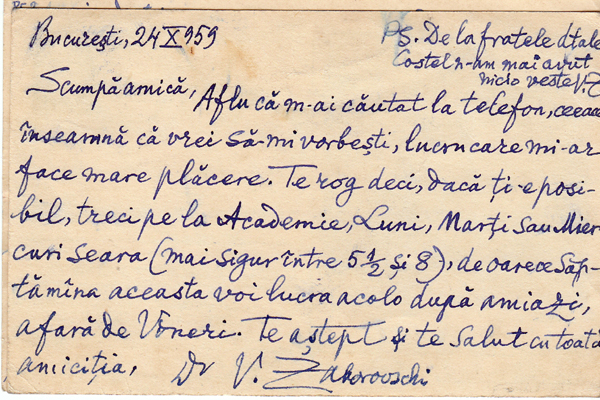 București, 24 X 959
P.S. De la fratele dtale
Costel n-am mai avut
nicio veste V.Z
Scumpă amică,
Aflu că m-ai căutat la telefon, ceeace
înseamnă că vrei să-mi vorbești, lucru care mi-ar
face mare plăcere. Te rog deci, dacă ți-e posi-
bil, treci pe la Academie, Luni, Marți sau Mier-
curi seara (mai sigur între 5 1/2 și 8), deoarece Săp-
tămîna aceasta voi lucra acolo după amiazi,
afară de Vineri. Te aștept și te salut cu toată
amiciția,
Dr V. Zaborovschi